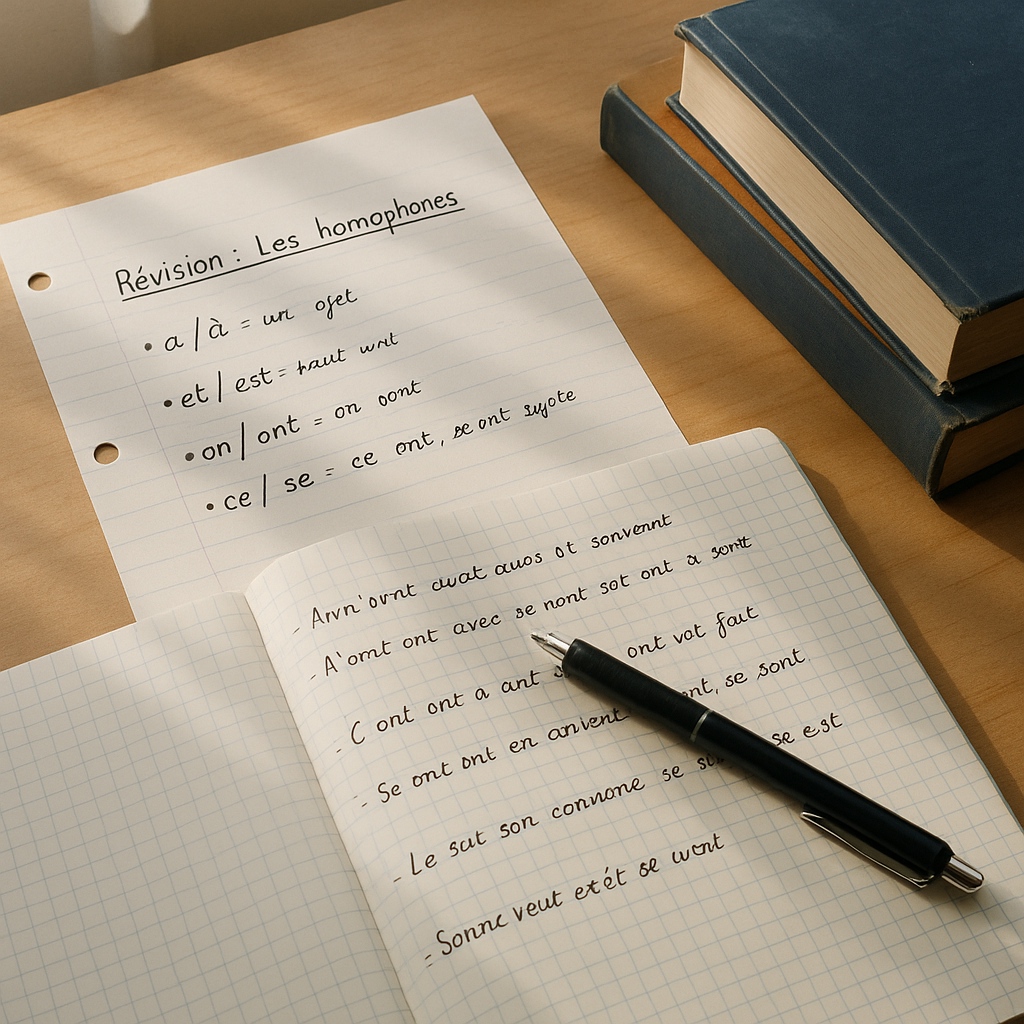 Révision : Les homophones
• a / à = un ojet
• et / est = haut
• on / ont = on oont
• ce / se = ce ont, se ont sujote
- ont avat auos ot sonvennt
- A'omt ont avec se nont sot ont a sontt
- C ont ont a ant ont vat faut
- Se ont ont en anvient se sont
- Le sat son connone se se est
- Sonnc veut exét se wont